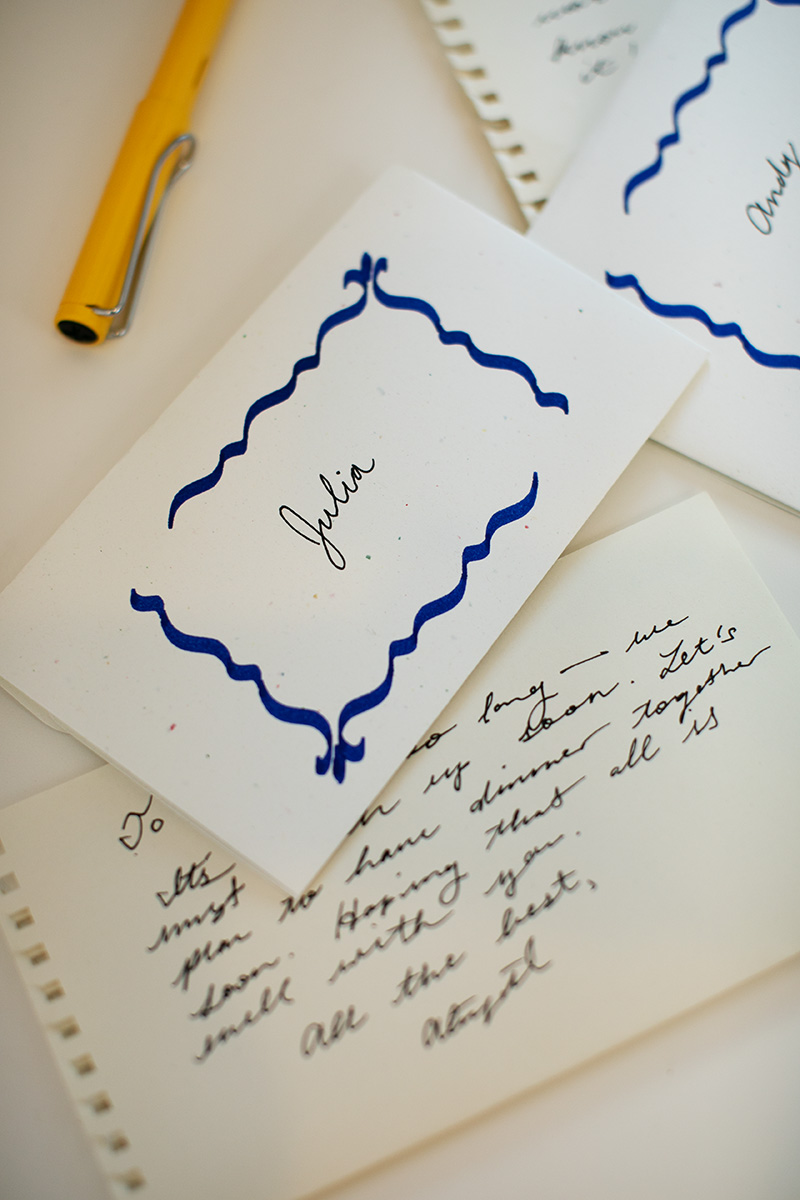 know
it!
Andy
Julia
To
Its so long — we
must up soon. Let's
plan to have dinner together
soon. Hoping that all is
well with you.
All the best,
Abigail